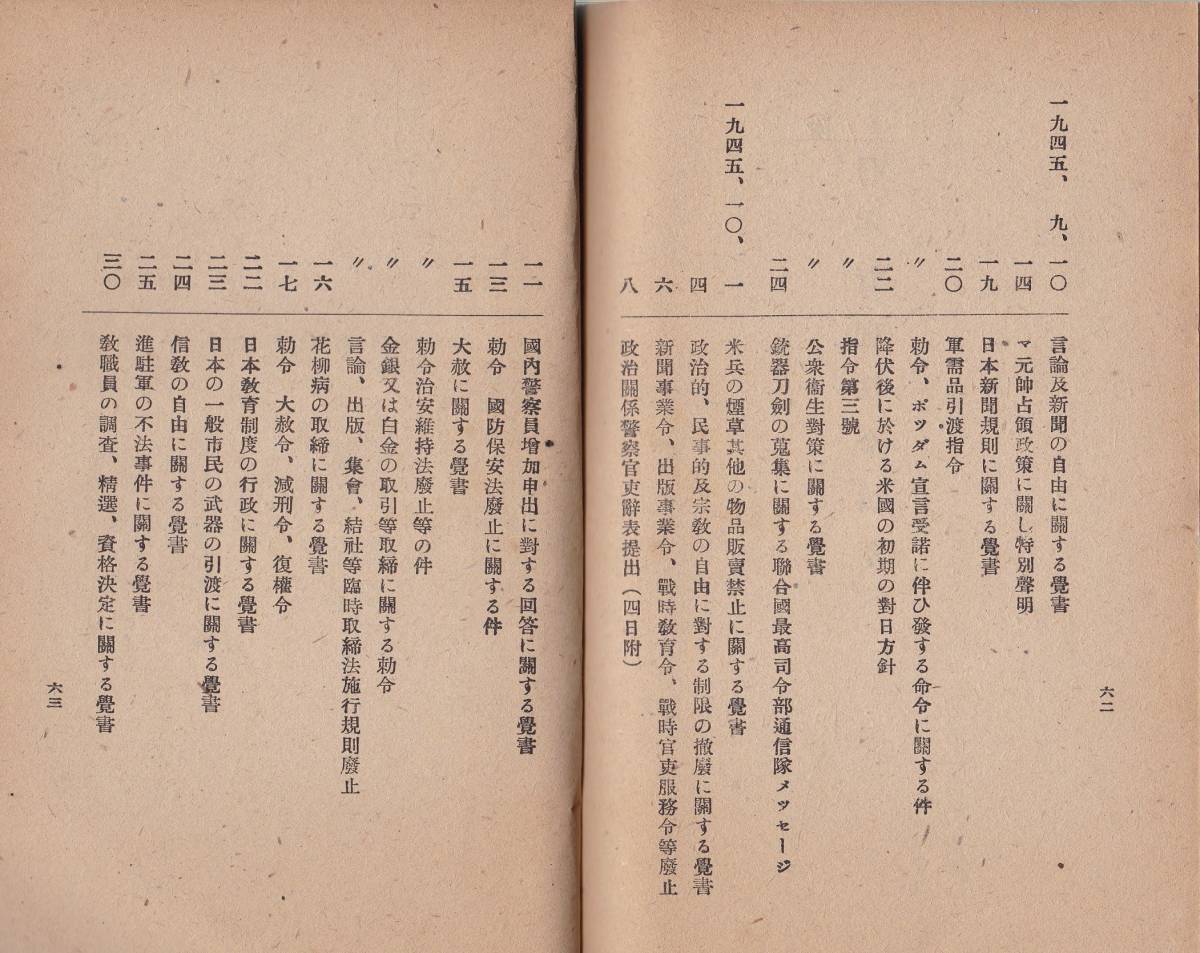 一九四五、九、一〇 言論及新聞の自由に關する覺書
一四 マ元帥占領政策に關し特別聲明
一九 日本新聞規則に關する覺書
二〇 軍需品引渡指令
〃 勅令、ポツダム宣言受諾に伴ひ發する命令に關する件
二二 降伏後に於ける米國の初期の對日方針
〃 指令第三號
〃 公衆衞生對策に關する覺書
二四 銃器刀劍の蒐集に關する聯合國最高司令部通信隊メッセージ
一九四五、一〇、一 米兵の煙草其他の物品販賣禁止に關する覺書
四 政治的、民事的及宗敎の自由に對する制限の撤廢に關する覺書
六 新聞事業令、出版事業令、戰時敎育令、戰時官吏服務令等廢止
八 政治關係警察官吏辭表提出(四日附)
六二
一一 國內警察員增加申出に對する回答に關する覺書
一三 勅令 國防保安法廢止に關する件
一五 大赦に關する覺書
〃 勅令治安維持法廢止等の件
〃 金銀又は白金の取引等取締に關する勅令
〃 言論、出版、集會、結社等臨時取締法施行規則廢止
一六 花柳病の取締に關する覺書
一七 勅令 大赦令、減刑令、復權令
二二 日本敎育制度の行政に關する覺書
二三 日本の一般市民の武器の引渡に關する覺書
二四 信敎の自由に關する覺書
二五 進駐軍の不法事件に關する覺書
三〇 敎職員の調查、精選、資格決定に關する覺書
六三